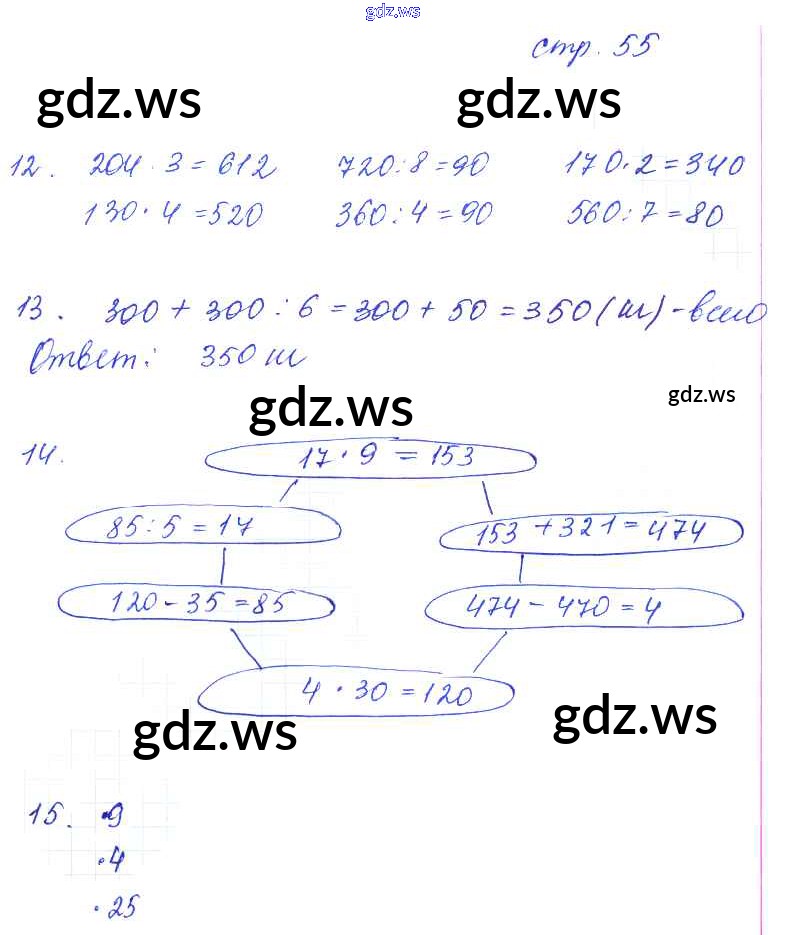 gdz.ws
стр. 55
gdz.ws gdz.ws
12. 204 · 3 = 612 720 : 8 = 90 170 · 2 = 340
130 · 4 = 520 360 : 4 = 90 560 : 7 = 80
13. 300 + 300 : 6 = 300 + 50 = 350 (ш) - всего
Ответ: 350 ш
gdz.ws gdz.ws
14. 17 · 9 = 153
85 : 5 = 17 153 + 321 = 474
120 - 35 = 85 474 - 470 = 4
4 · 30 = 120
gdz.ws gdz.ws
15. · 9
· 4
· 25